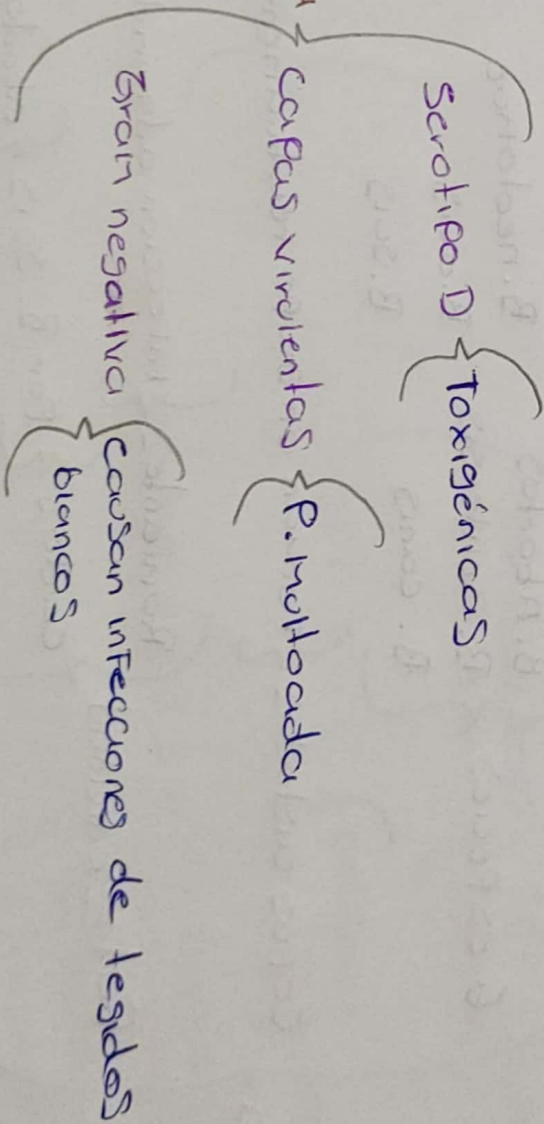 Serotipo D
Toxigénicas
Capas virolentas
P. Moltocida
Gram negativa
Causan infecciones de tegidos
blancos